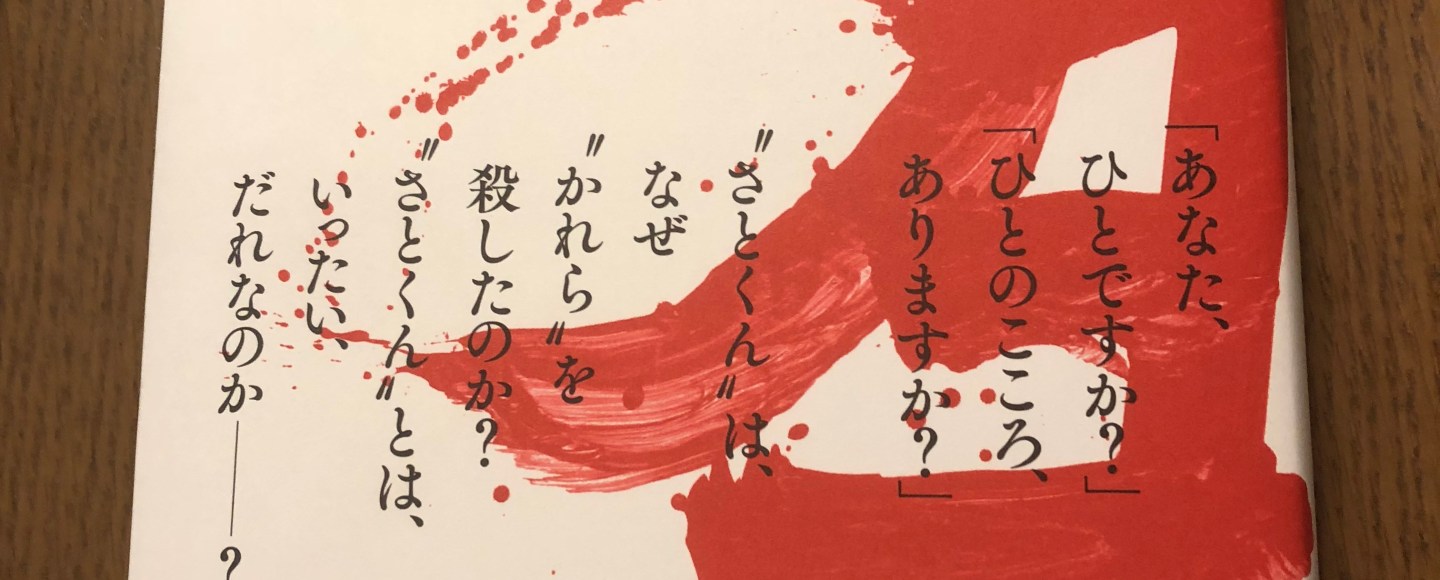 「あなた、
ひとですか？」
「ひとのこころ、
ありますか？」
〝さとくん〟は、
なぜ
〝かれら〟を
殺したのか？
〝さとくん〟とは、
いったい、
だれなのか――？